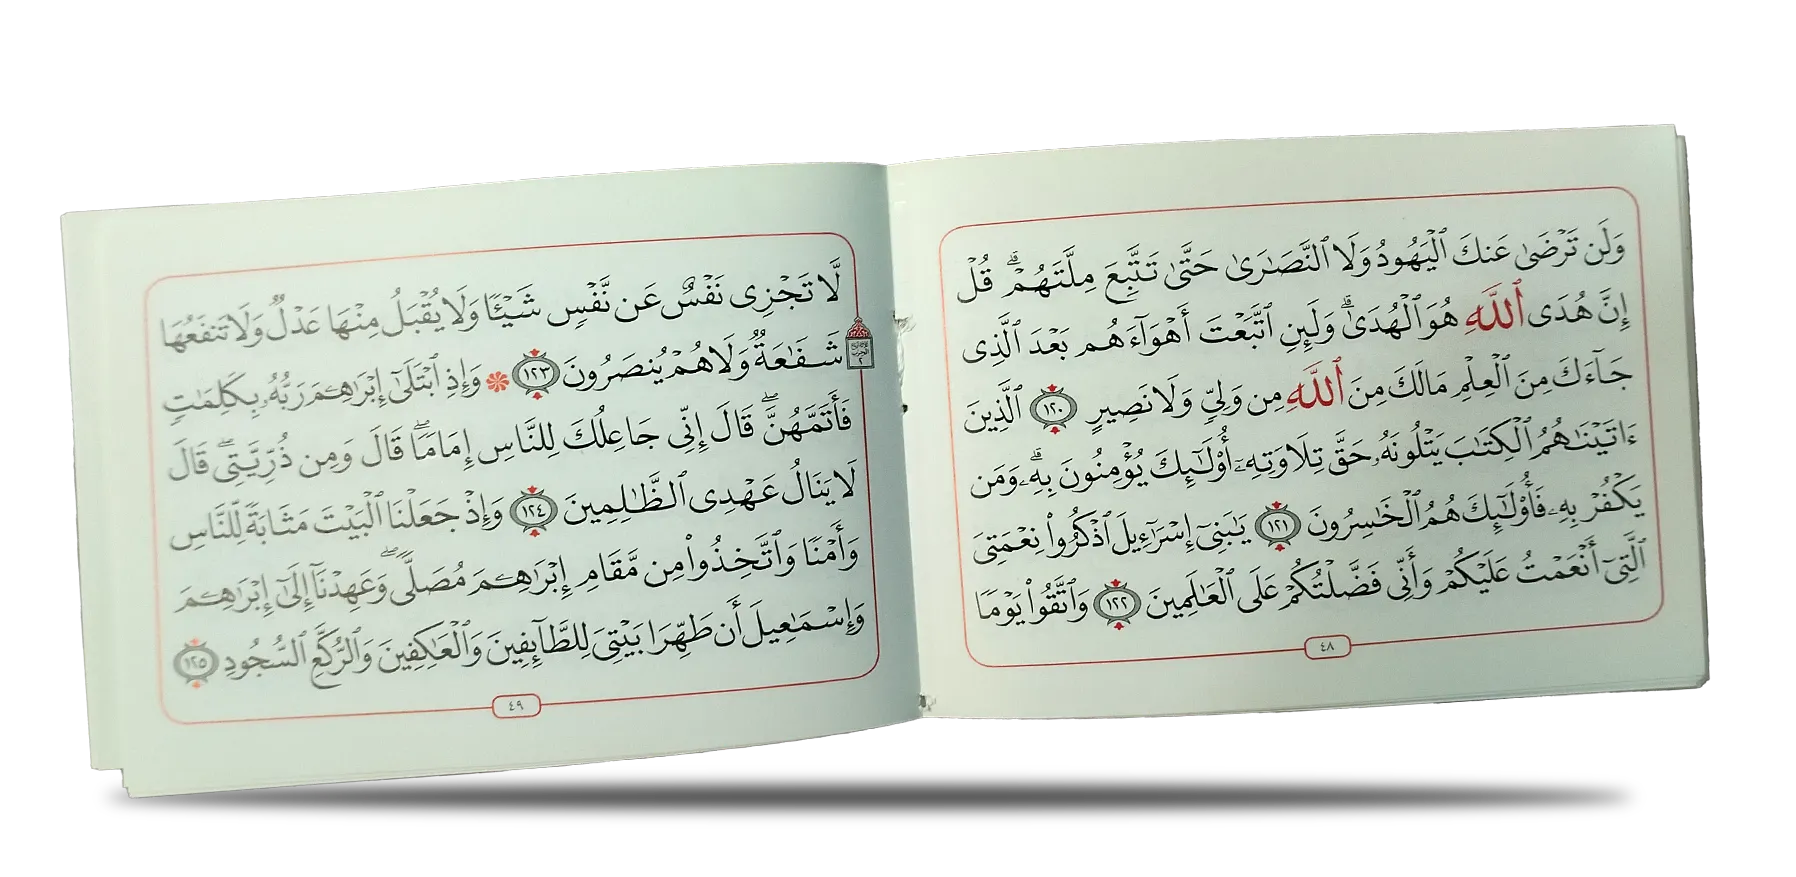 وَلَن تَرْضَىٰ عَنكَ ٱلْيَهُودُ وَلَا ٱلنَّصَٰرَىٰ حَتَّىٰ تَتَّبِعَ مِلَّتَهُمْ ۗ قُلْ
إِنَّ هُدَى ٱللَّهِ هُوَ ٱلْهُدَىٰ ۗ وَلَئِنِ ٱتَّبَعْتَ أَهْوَآءَهُم بَعْدَ ٱلَّذِى
جَآءَكَ مِنَ ٱلْعِلْمِ مَا لَكَ مِنَ ٱللَّهِ مِن وَلِىٍّ وَلَا نَصِيرٍ ١٢٠ ٱلَّذِينَ
ءَاتَيْنَٰهُمُ ٱلْكِتَٰبَ يَتْلُونَهُۥ حَقَّ تِلَاوَتِهِۦٓ أُو۟لَٰٓئِكَ يُؤْمِنُونَ بِهِۦ ۗ وَمَن
يَكْفُرْ بِهِۦ فَأُو۟لَٰٓئِكَ هُمُ ٱلْخَٰسِرُونَ ١٢١ يَٰبَنِىٓ إِسْرَٰٓءِيلَ ٱذْكُرُوا۟ نِعْمَتِىَ
ٱلَّتِىٓ أَنْعَمْتُ عَلَيْكُمْ وَأَنِّى فَضَّلْتُكُمْ عَلَى ٱلْعَٰلَمِينَ ١٢٢ وَٱتَّقُوا۟ يَوْمًا
٤٨
لَّا تَجْزِى نَفْسٌ عَن نَّفْسٍ شَيْـًٔا وَلَا يُقْبَلُ مِنْهَا عَدْلٌ وَلَا تَنفَعُهَا
شَفَٰعَةٌ وَلَا هُمْ يُنصَرُونَ ١٢٣ ۞ وَإِذِ ٱبْتَلَىٰٓ إِبْرَٰهِـۧمَ رَبُّهُۥ بِكَلِمَٰتٍ
فَأَتَمَّهُنَّ ۖ قَالَ إِنِّى جَاعِلُكَ لِلنَّاسِ إِمَامًا ۖ قَالَ وَمِن ذُرِّيَّتِى ۖ قَالَ
لَا يَنَالُ عَهْدِى ٱلظَّٰلِمِينَ ١٢٤ وَإِذْ جَعَلْنَا ٱلْبَيْتَ مَثَابَةً لِّلنَّاسِ
وَأَمْنًا وَٱتَّخِذُوا۟ مِن مَّقَامِ إِبْرَٰهِـۧمَ مُصَلًّى ۖ وَعَهِدْنَآ إِلَىٰٓ إِبْرَٰهِـۧمَ
وَإِسْمَٰعِيلَ أَن طَهِّرَا بَيْتِىَ لِلطَّآئِفِينَ وَٱلْعَٰكِفِينَ وَٱلرُّكَّعِ ٱلسُّجُودِ ١٢٥
٤٩